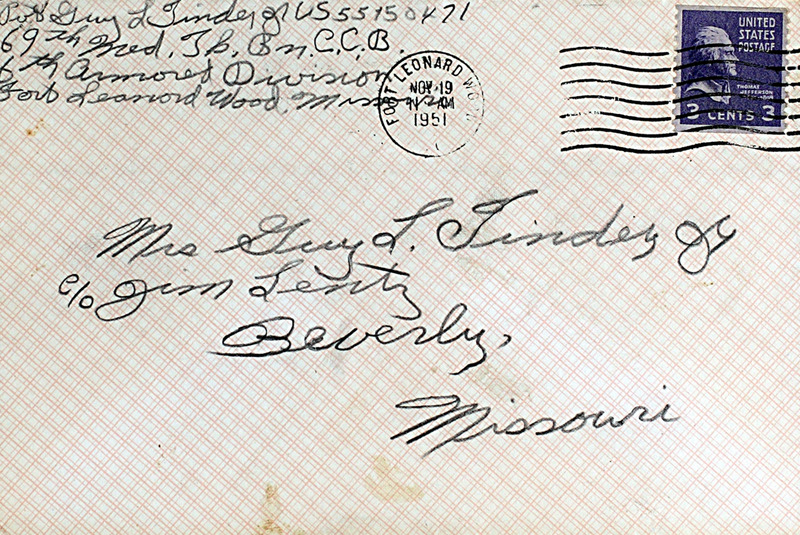 Pvt Guy L Tinder Jr US 55150471
69th Med. Tk. Bn. C.C.B.
6th Armored Division
Fort Leanord Wood, Missouri
FORT LEONARD WOOD
NOV 19
11 AM
1951
UNITED
STATES
POSTAGE
THOMAS
JEFFERSON
3 CENTS 3
Mrs Guy L. Tinder Jr
c/o Jim Lentz
Beverly,
Missouri